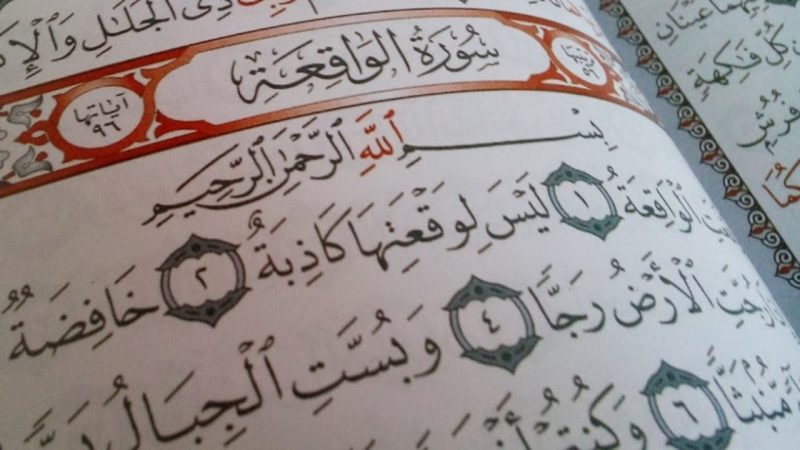 ذِى ٱلْجَلَٰلِ وَٱلْإِكـ
سُورَةُ الوَاقِعَةِ
آياتها ٩٦
بِسْمِ ٱللَّهِ ٱلرَّحْمَٰنِ ٱلرَّحِيمِ
ٱلْوَاقِعَةُ ١ لَيْسَ لِوَقْعَتِهَا كَاذِبَةٌ ٢ خَافِضَةٌ
رُجَّتِ ٱلْأَرْضُ رَجًّا ٤ وَبُسَّتِ ٱلْجِبَالُ
مُّنۢبَثًّا ٦ وَكُنتُمْ
عَيْنَانِ
كُلِّ فَٰكِهَةٍ
فُرُشٍ